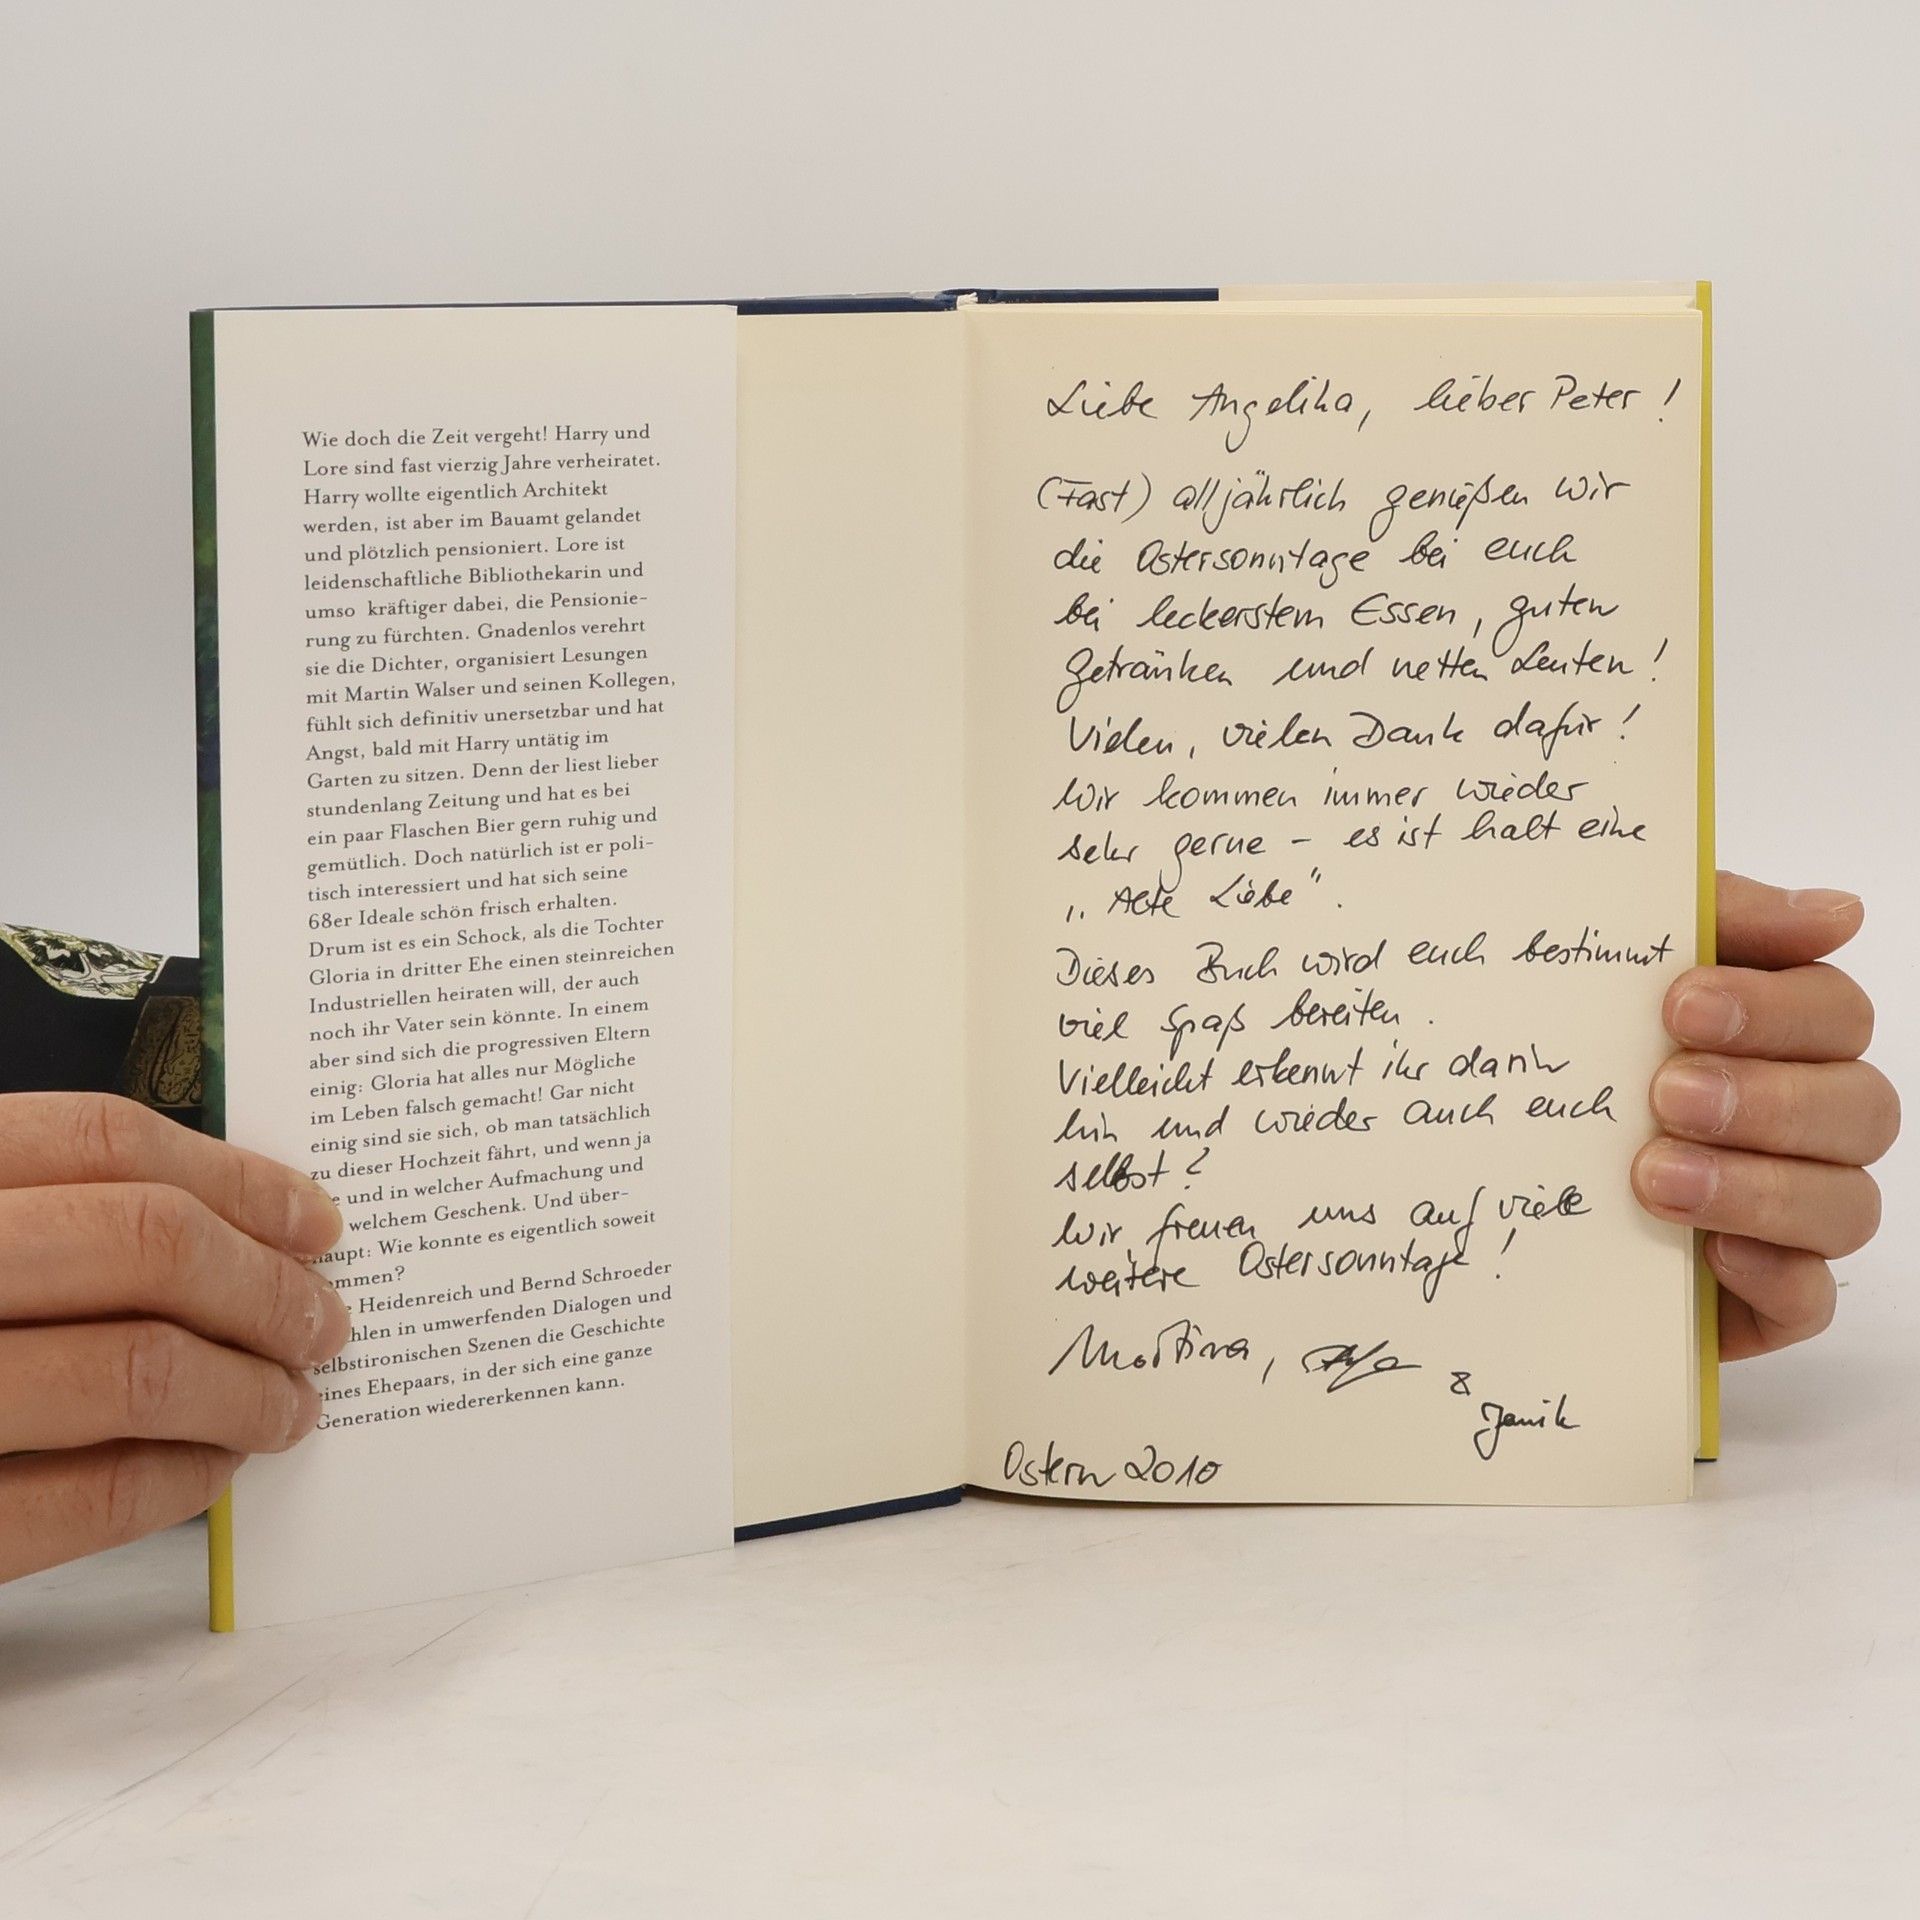 Wie doch die Zeit vergeht! Harry und
Lore sind fast vierzig Jahre verheiratet.
Harry wollte eigentlich Architekt
werden, ist aber im Bauamt gelandet
und plötzlich pensioniert. Lore ist
leidenschaftliche Bibliothekarin und
umso kräftiger dabei, die Pensionie-
rung zu fürchten. Gnadenlos verehrt
sie die Dichter, organisiert Lesungen
mit Martin Walser und seinen Kollegen,
fühlt sich definitiv unersetzbar und hat
Angst, bald mit Harry untätig im
Garten zu sitzen. Denn der liest lieber
stundenlang Zeitung und hat es bei
ein paar Flaschen Bier gern ruhig und
gemütlich. Doch natürlich ist er poli-
tisch interessiert und hat sich seine
68er Ideale schön frisch erhalten.
Drum ist es ein Schock, als die Tochter
Gloria in dritter Ehe einen steinreichen
Industriellen heiraten will, der auch
noch ihr Vater sein könnte. In einem
aber sind sich die progressiven Eltern
einig: Gloria hat alles nur Mögliche
im Leben falsch gemacht! Gar nicht
einig sind sie sich, ob man tatsächlich
zu dieser Hochzeit fährt, und wenn ja
und in welcher Aufmachung und
welchem Geschenk. Und über-
haupt: Wie konnte es eigentlich soweit
ommen?
Heidenreich und Bernd Schroeder
hlen in umwerfenden Dialogen und
selbstironischen Szenen die Geschichte
eines Ehepaars, in der sich eine ganze
Generation wiedererkennen kann.
Liebe Angelika, lieber Peter!
(Fast) alljährlich genießen wir
die Ostersonntage bei euch
bei leckerstem Essen, guten
Getränken und netten Leuten!
Vielen, vielen Dank dafür!
Wir kommen immer wieder
sehr gerne – es ist halt eine
„Alte Liebe".
Dieses Buch wird euch bestimmt
viel Spaß bereiten.
Vielleicht erkennt ihr darin
hin und wieder auch euch
selbst?
Wir freuen uns auf viele
weitere Ostersonntage!
Martina, &
Janik
Ostern 2010